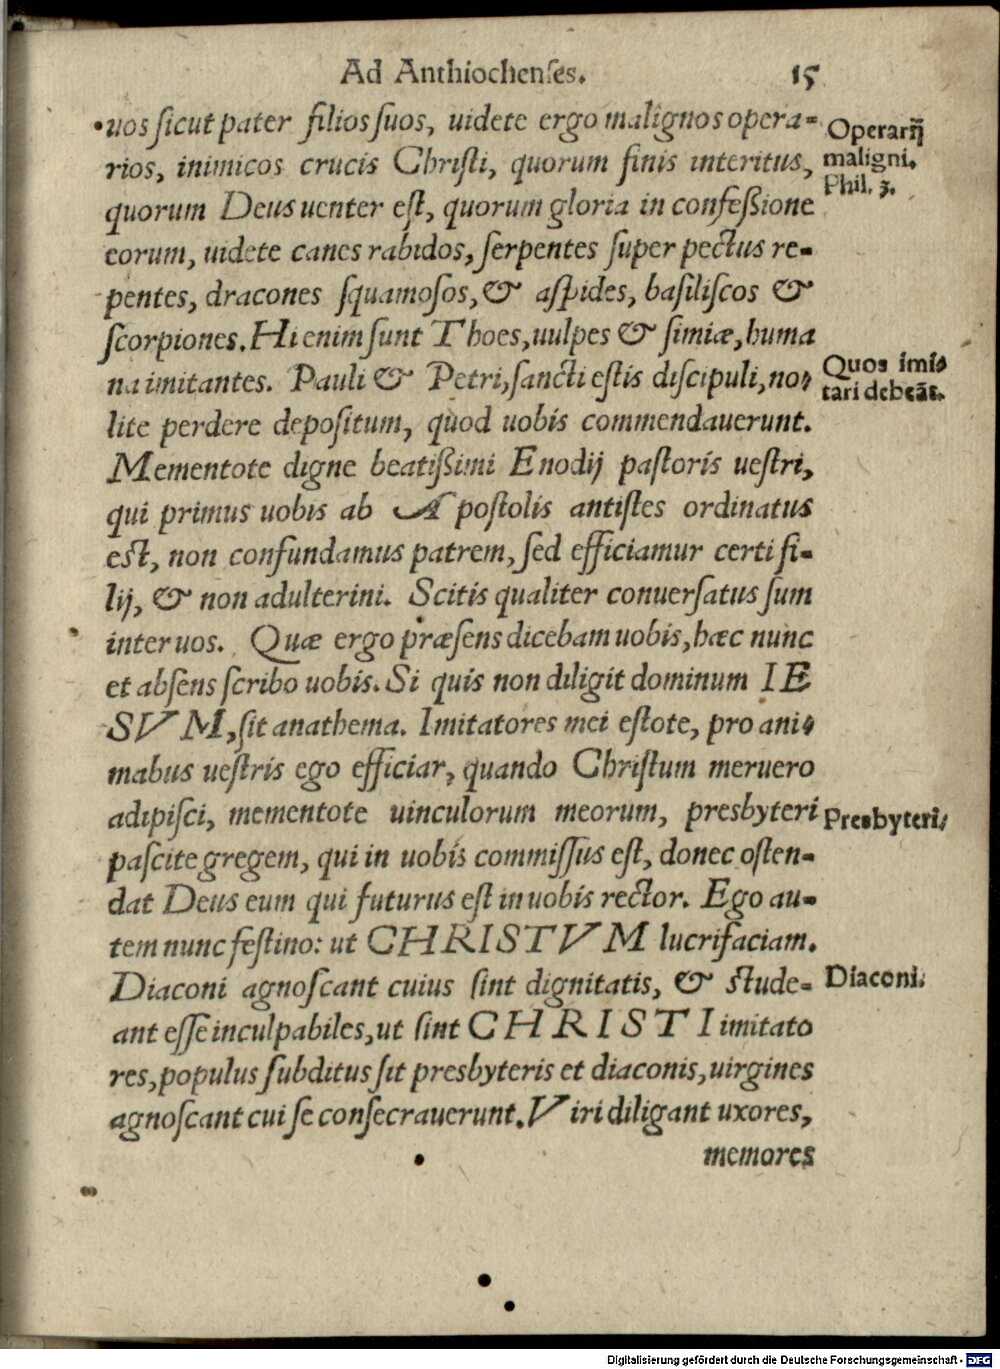 Ad Anthiochenses. 15
uos ſicut pater filios ſuos, uidete ergo malignos opera-
rios, inimicos crucis Chriſti, quorum finis interitus,
quorum Deus uenter eſt, quorum gloria in confeßione
eorum, uidete canes rabidos, ſerpentes ſuper pectus re-
pentes, dracones ſquamoſos, & aſpides, baſiliſcos &
ſcorpiones. Hi enim ſunt Thoes, uulpes & ſimiæ, huma
na imitantes. Pauli & Petri, ſancti eſtis diſcipuli, no-
lite perdere depoſitum, quod uobis commendauerunt.
Mementote digne beatißimi Enodij paſtoris ueſtri,
qui primus uobis ab Apoſtolis antiſtes ordinatus
eſt, non confundamus patrem, ſed efficiamur certi fi-
lij, & non adulterini. Scitis qualiter conuerſatus ſum
inter uos. Quæ ergo præſens dicebam uobis, hæc nunc
et abſens ſcribo uobis. Si quis non diligit dominum IE
SVM, ſit anathema. Imitatores mei eſtote, pro ani-
mabus ueſtris ego efficiar, quando Chriſtum meruero
adipiſci, mementote uinculorum meorum, presbyteri
paſcite gregem, qui in uobis commiſſus eſt, donec oſten-
dat Deus eum qui futurus eſt in uobis rector. Ego au-
tem nunc feſtino: ut CHRISTVM lucrifaciam.
Diaconi agnoſcant cuius ſint dignitatis, & ſtude-
ant eſſe inculpabiles, ut ſint CHRISTI imitato
res, populus ſubditus ſit presbyteris et diaconis, uirgines
agnoſcant cui ſe conſecrauerunt. Viri diligant uxores,
memores
Operarij
maligni.
Phil. 3.
Quos imi-
tari debeãt.
Presbyteri.
Diaconi.
Digitalisierung gefördert durch die Deutsche Forschungsgemeinschaft - DFG